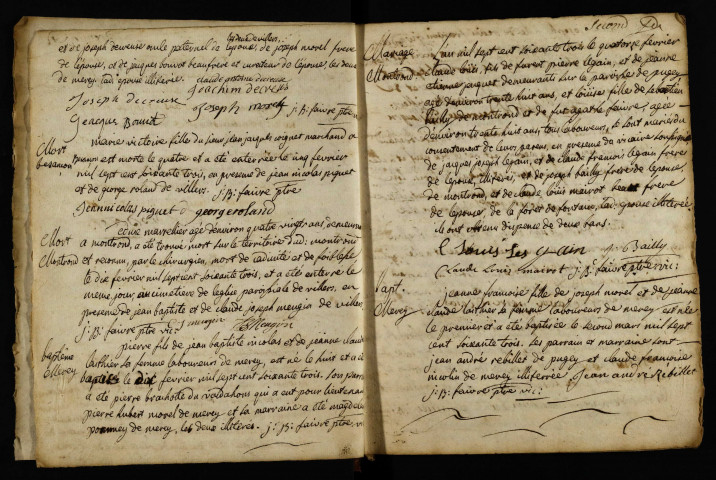 les deux de villers,
et de joseph decreuse mule paternel de lepouse, de joseph morel frere
de lepouse, et de jaques bouvet beaufrere et curateur de lepouse, les deux
de merey, lad: epouse illiterée. claude decreuse
joachim decreuse
joseph decreuse joseph morel J: B: faivre ptre
Jacque Bouvet
Mort
besançon
marie victoire fille du sieur jean jaques coignet marchand a
besançon est morte le quatre et a été enterrée le cinq fevrier
mil sept cent soixante trois, en presence de jean nicolas piguet
et de george roland de villers. J: B: faivre ptre
Jeannicolas piguet george roland
Mort
Montrond
marrelier agé denviron quatre vingts ans, demeurant
a montrond, a été trouvé mort sur le territoire dud: montrond
et reconnu, par le chirurgien, mort de caducité et de foiblesse
le dix fevrier mil sept cent soixante trois, et a été enterré le
meme jour au cimetiere de leglise paroissiale de villers, en
presence de jean baptiste et de claude joseph mengin de villers
J: B: faivre ptre vic: mengin C J Mengin
baptême
Merey
pierre fils de jean baptiste nicolas et de jeanne claude
laithier sa femme laboureurs de merey, est né le huit et a été
baptisé le dix fevrier mil sept cent soixante trois. Son parrain
a été pierre du valdahon qui a eut pour lieutenant
pierre hubert morel de merey et sa marraine a été magdelaine
pommey de merey, les deux illiterés. J: B: faivre ptre vic:
Second
Mariage
Montrond
Lan mil sept cent soixante trois le quatorze fevrier
claude louis, fils de furent pierre legain, et de jeanne
etienne jaquet demeurants sur la paroisse de pugey
agé denviron trente huit ans, et louise fille de sebastien
bailly de montrond et de fut agathe faivre, agée
denviron trente huit ans, tous laboureurs, se sont mariés du
consentement de leurs parens, en presence du vicaire soussigné
de jaques joseph legain, et de claude francois legain frere
de lepoux, illiterés, et de joseph bailly frere de lepouse,
de montrond, et de claude louis mairot beau frere
de lepouse, de la foret de fontaine, lad: epouse illiterée.
ils ont obtenu dispense de deux bans.
C Louis Les Gain J: Bailly
Claude Louis mairot J: B: faivre ptre vic:
Bapt.
Merey
jeanne francoise fille de joseph morel et de jeanne
claude laithier sa femme laboureurs de merey est née
le premier et a été baptisée le second mars mil sept
cent soixante trois. Les parrain et marraine sont
jean andré rebillet de pugey et claude francoise
nicolin de merey illiterée Jean andré Rebillet
J: B: faivre ptre vic: